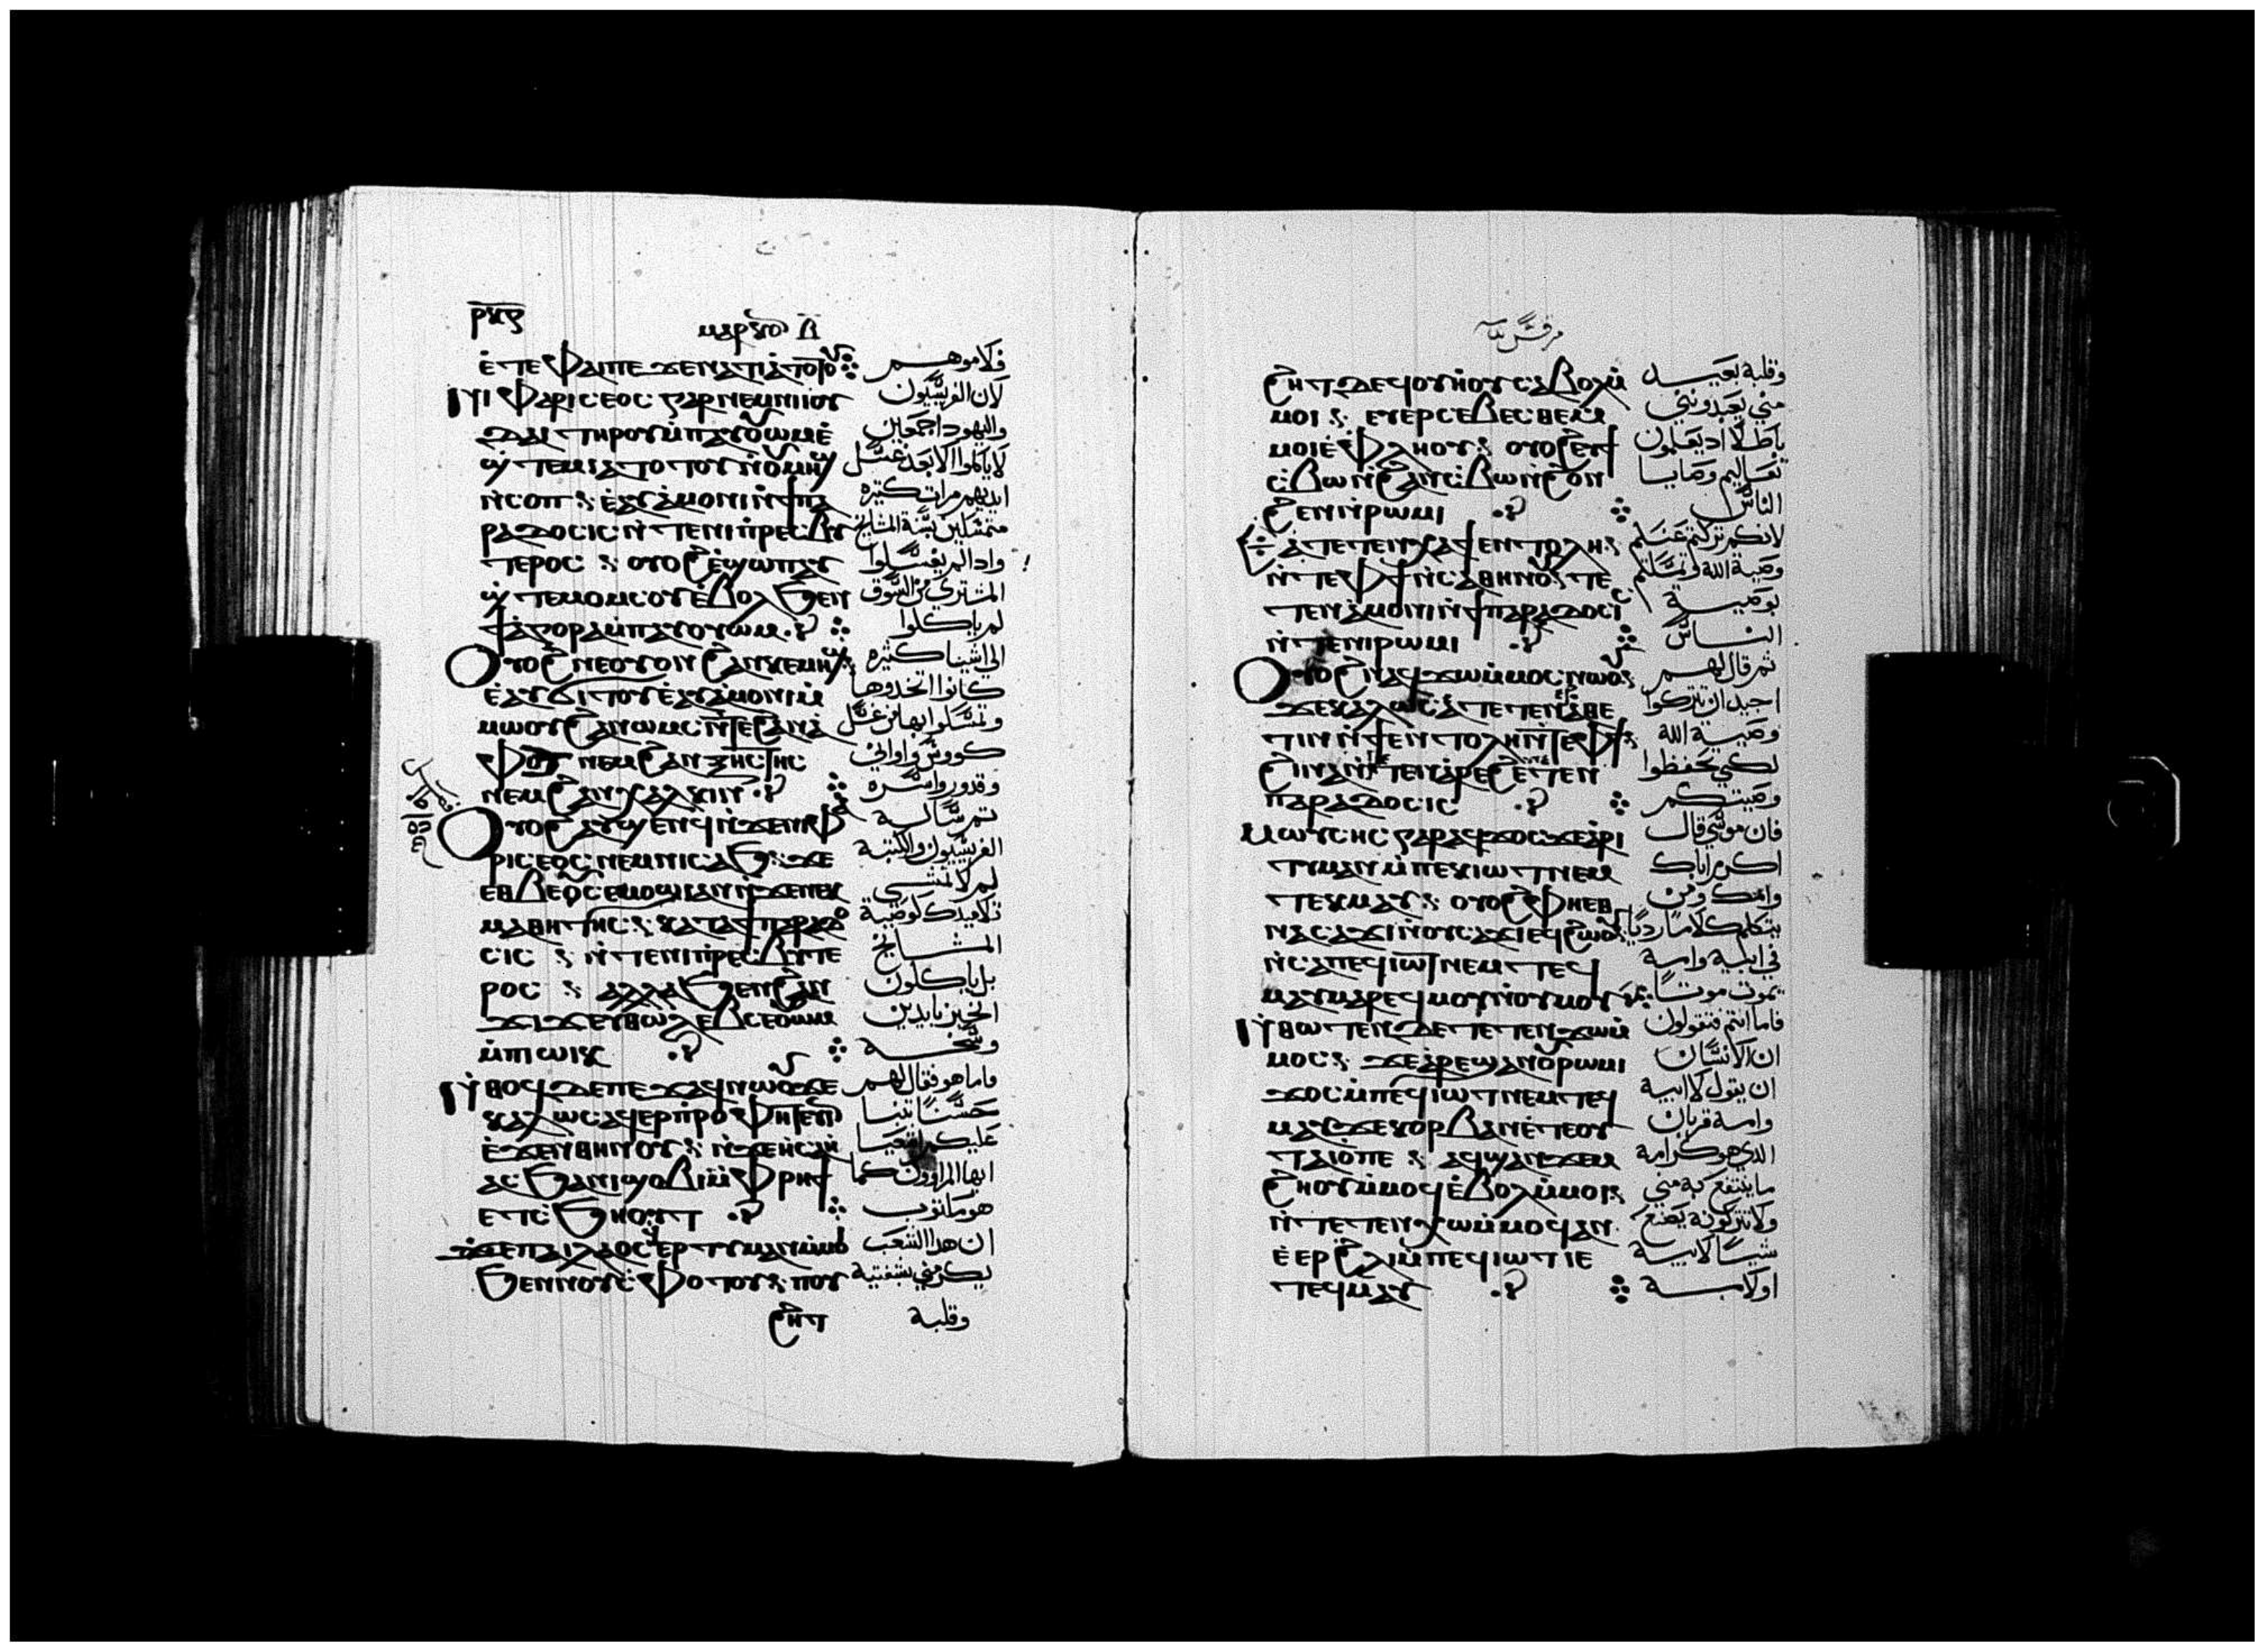 ⲣⲝⲋ
ⲙⲁⲣⲕⲟⲛ
ⲉ̀ⲧⲉ ⲫⲁⲓ ⲡⲉ ϫⲉ ⲛⲁⲧⲓⲁⲧⲟⲧⲟⲩ
ⲛⲓⲫⲁⲣⲓⲥⲉⲟⲥ ⲅⲁⲣ ⲛⲉⲙ ⲛⲓⲓⲟⲩ
ⲇⲁⲓ ⲧⲏⲣⲟⲩ ⲙ̀ⲡⲁⲩⲟⲩⲱⲙ ⲉ̀
ϣ̀ⲧⲉⲙⲓⲁⲧⲟⲧⲟⲩ ⲛ̀ⲟⲩⲙⲏϣ
ⲛ̀ⲥⲟⲡ ⲉ̀ⲁⲩⲁ̀ⲙⲟⲛⲓ ⲛ̀ϯⲡⲁ
ⲣⲁⲇⲟⲥⲓⲥ ⲛ̀ⲧⲉ ⲛⲓⲡ̀ⲣⲉⲥⲃⲩ
ⲧⲉⲣⲟⲥ ⲟⲩⲟϩ ⲉ̀ϣⲱⲡ ⲁⲩ
ϣ̀ⲧⲉⲙⲟⲙⲥⲟⲩ ⲉ̀ⲃⲟⲗ ϧⲉⲛ
ϯⲁ̀ⲅⲟⲣⲁ ⲙ̀ⲡⲁⲩⲟⲩⲱⲙ
ⲟⲩⲟϩ ⲛⲉ ⲟⲩⲟⲛ ϩⲁⲛⲕⲉⲙⲏϣ
ⲉ̀ⲁⲩϭⲓⲧⲟⲩ ⲉ̀ⲁⲩⲁ̀ⲙⲟⲛⲓ ⲙ̀
ⲙⲱⲟⲩ ϩⲁⲛⲱⲙⲥ ⲛ̀ⲧⲉ ϩⲁⲛⲁ̀
ⲫⲟⲧ ⲛⲉⲙ ϩⲁⲛⲝⲏⲥⲧⲏⲥ
ⲛⲉⲙ ϩⲁⲛⲭⲁⲗⲕⲓⲛ
ⲟⲩⲟϩ ⲁⲩϣⲉⲛϥ ⲛ̀ϫⲉ ⲛⲓⲫⲁ
ⲣⲓⲥⲉⲟⲥ ⲛⲉⲙ ⲛⲓⲥⲁϧ ϫⲉ
ⲉⲑⲃⲉⲟⲩ ⲥⲉⲙⲟϣⲓ ⲁⲛ ⲛ̀ϫⲉ ⲛⲉⲕ
ⲙⲁⲑⲏⲧⲏⲥ ⲕⲁⲧⲁ ϯⲡⲁⲣⲁⲇⲟ
ⲥⲓⲥ ⲛ̀ⲧⲉ ⲛⲓⲡ̀ⲣⲉⲥⲃⲩⲧⲉ
ⲣⲟⲥ ⲁⲗⲗⲁ ϧⲉⲛ ϩⲁⲛ
ϫⲓϫ ⲉⲩⲑⲱⲗⲉⲃ ⲥⲉⲟⲩⲱⲙ
ⲙ̀ⲡⲓⲱⲓⲕ
ⲛ̀ⲑⲟϥ ⲇⲉ ⲡⲉϫⲁϥ ⲛⲱⲟⲩ ϫⲉ
ⲕⲁⲗⲱⲥ ⲁϥⲉⲣⲡ̀ⲣⲟⲫⲏⲧⲉⲩⲓⲛ
ⲉ̀ϫⲉⲛ ⲑⲏⲛⲟⲩ ⲛ̀ϫⲉ ⲏⲥⲁⲏ̀
ⲁⲥ ϧⲁ ⲛⲓϣⲟⲃⲓ ⲙ̀ⲫⲣⲏϯ
ⲉⲧⲥ̀ϧⲏⲟⲩⲧ
ϫⲉ ⲡⲁⲓⲗⲁⲟⲥ ⲉⲣⲧⲓⲙⲁⲛ ⲙ̀ⲙⲟⲓ
ϧⲉⲛ ⲛⲟⲩⲥ̀ⲫⲟⲧⲟⲩ ⲡⲟⲩ
ϩⲏⲧ
فلاموهم
لان الفريسيون
واليهود اجمعين
لا ياكلوا الا بعد غسل
ايديهم مرات كتيره
متمسكين بسنة المشايخ
وادا لم يغسلوا
المشتري من السوق
لم ياكلوا
الي اشيا كتيره
كانوا اتخدوها
وتمسكوا بها من غسل
كووس واواني
وقدور واسره
تم ساله
الفريسيون والكتبة
لم لا تمشي
تلاميدك لوصية
المشايخ
بل ياكلون
الخبز بايدين
وسخه
فاما هو فقال لهم
حسنا تنبا
عليكم اشعيا
ايها المراوون كما
هو مكتوب
ان هدا الشعب
يكرمني بشفتيه
وقلبه
مرقس
ϩⲏⲧ ⲇⲉ ϥⲟⲩⲏⲟⲩ ⲥⲁⲃⲟⲗ ⲙ̀
ⲙⲟⲓ ⲉⲩⲉⲣⲥⲉⲃⲉⲥⲑⲉ ⲙ̀
ⲙⲟⲓ ⲉ̀ⲫⲗⲏⲟⲩ ⲟⲩⲟϩ ⲉⲩϯ
ⲥ̀ⲃⲱ ⲛ̀ϩⲁⲛⲥ̀ⲃⲱ ⲛ̀ϩⲟⲛ
ϩⲉⲛ ⲛ̀ⲣⲱⲙⲓ
ⲁⲧⲉⲧⲉⲛⲭⲁ ϯⲉⲛⲧⲟⲗⲏ
ⲛ̀ⲧⲉ ⲫϯ ⲛ̀ⲥⲁ ⲑⲏⲛⲟⲩ ⲧⲉ
ⲧⲉⲛⲁ̀ⲙⲟⲛⲓ ⲛ̀ϯⲡⲁⲣⲁⲇⲟⲥⲓⲥ
ⲛ̀ⲧⲉ ⲛⲓⲣⲱⲙⲓ
ⲟⲩⲟϩ ⲛⲁϥϫⲱ ⲙ̀ⲙⲟⲥ ⲛⲱⲟⲩ
ϫⲉ ⲕⲁⲗⲱⲥ ⲁ̀ⲧⲉⲧⲉⲛⲉⲣⲁ̀ⲑⲉ
ⲧⲓⲛ ⲛ̀ϯⲉⲛⲧⲟⲗⲏ ⲛ̀ⲧⲉ ⲫϯ
ϩⲓⲛⲁ ⲛ̀ⲧⲉⲧⲉⲛⲁ̀ⲣⲉϩ ⲉ̀ⲧⲉⲛ
ⲡⲁⲣⲁⲇⲟⲥⲓⲥ
ⲙⲱⲩⲥⲏⲥ ⲅⲁⲣ ⲁϥϫⲟⲥ ϫⲉ ⲁ̀ⲣⲓ
ⲧⲓⲙⲁⲛ ⲙ̀ⲡⲉⲕⲓⲱⲧ ⲛⲉⲙ
ⲧⲉⲕⲙⲁⲩ ⲟⲩⲟϩ ⲫⲏ ⲉⲑ
ⲛⲁⲥⲁϫⲓ ⲛ̀ⲟⲩⲥⲁϫⲓ ⲉϥϩⲱⲟⲩ
ⲛ̀ⲥⲁ ⲡⲉϥⲓⲱⲧ ⲛⲉⲙ ⲧⲉϥ
ⲙⲁⲩ ⲙⲁⲣⲉϥⲙⲟⲩ ⲛ̀ⲟⲩⲙⲟⲩ
ⲛ̀ⲑⲱⲧⲉⲛ ⲇⲉ ⲧⲉⲧⲉⲛϫⲱ ⲙ̀
ⲙⲟⲥ ϫⲉ ⲁ̀ⲣⲉϣⲁⲛ ⲟⲩⲣⲱⲙⲓ
ϫⲟⲥ ⲙ̀ⲡⲉϥⲓⲱⲧ ⲛⲉⲙ ⲧⲉϥ
ⲙⲁⲩ ϫⲉ ⲕⲟⲣⲃⲁⲛ ⲉ̀ⲧⲉ ⲟⲩ
ⲧⲁⲓⲟ ⲡⲉ ⲁϥϣⲁⲛϫⲉⲙ
ϩⲏⲟⲩ ⲙ̀ⲙⲟϥ ⲉ̀ⲃⲟⲗ ⲙ̀ⲙⲟⲓ
ⲛ̀ⲧⲉⲧⲉⲛⲭⲱ ⲙ̀ⲙⲟϥ ⲁⲛ
ⲉ̀ⲉⲣ ϩⲗⲓ ⲙ̀ⲡⲉϥⲓⲱⲧ ⲓⲉ
ⲧⲉϥⲙⲁⲩ
وقلبه بعيد
مني يعبدونني
باطلا اد يعلمون
تعاليم وصايا
الناس
لانكم تركتم عنكم
وصية الله وتمسكتم
بوصية
الناس
ثم قال لهم
اجيد ان تتركوا
وصية الله
لكي تحفظوا
وصيتكم
فان موسي قال
اكرم اباك
وامك ومن
يتكلم كلاما رديا
في ابيه وامه
يموت موتا
فاما انتم فتقولون
ان الانسان
ان يقول لابيه
وامه قربان
الدي هو كرامه
ما ينتفع به مني
ولا تتركونه يصنع
شيا لابيه
او لامه